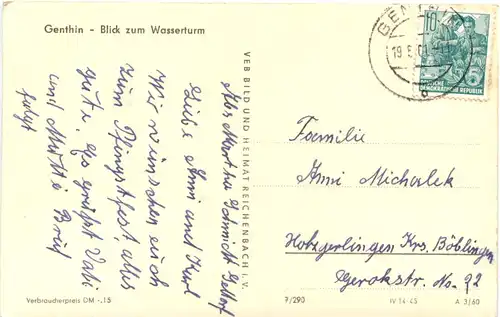 Genthin - Blick zum Wasserturm
Abs. Martha Schmidt
Liebe Anni und Kurt
Wir wünschen euch
zum Pfingstfest, alles
gute, es grüßt Vati
und Mutti Brief
folgt
VEB BILD UND HEIMAT REICHENBACH I. V.
GENTHIN
19.5.61
10
DEUTSCHE
DEMOKRATISCHE REPUBLIK
Familie
Anni Michalek
Holzgerlingen Krs. Böblingen
Gerokstr. No. 22
Verbraucherpreis DM -.15
7/290
IV 14-45
A 3/60